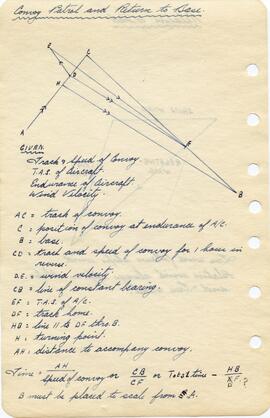 Convoy Patrol and Return to Base.
E
C
D
H
F
A
B
GIVEN.
Track & Speed of Convoy.
T.A.S. of Aircraft.
Endurance of Aircraft.
Wind Velocity.
AC = track of convoy.
C = position of convoy at endurance of A/C.
B = base.
CD = track and speed of convoy for 1 hour in
reverse.
DE = wind velocity.
CB = line of constant bearing.
EF = T.A.S. of A/C.
DF = track home.
HB = line 11 to DF thro. B.
H = turning point.
AH = distance to accompany convoy.
Time = AH / Speed of convoy or CB / CF or Total time - HB / ?
B must be placed to scale from A.